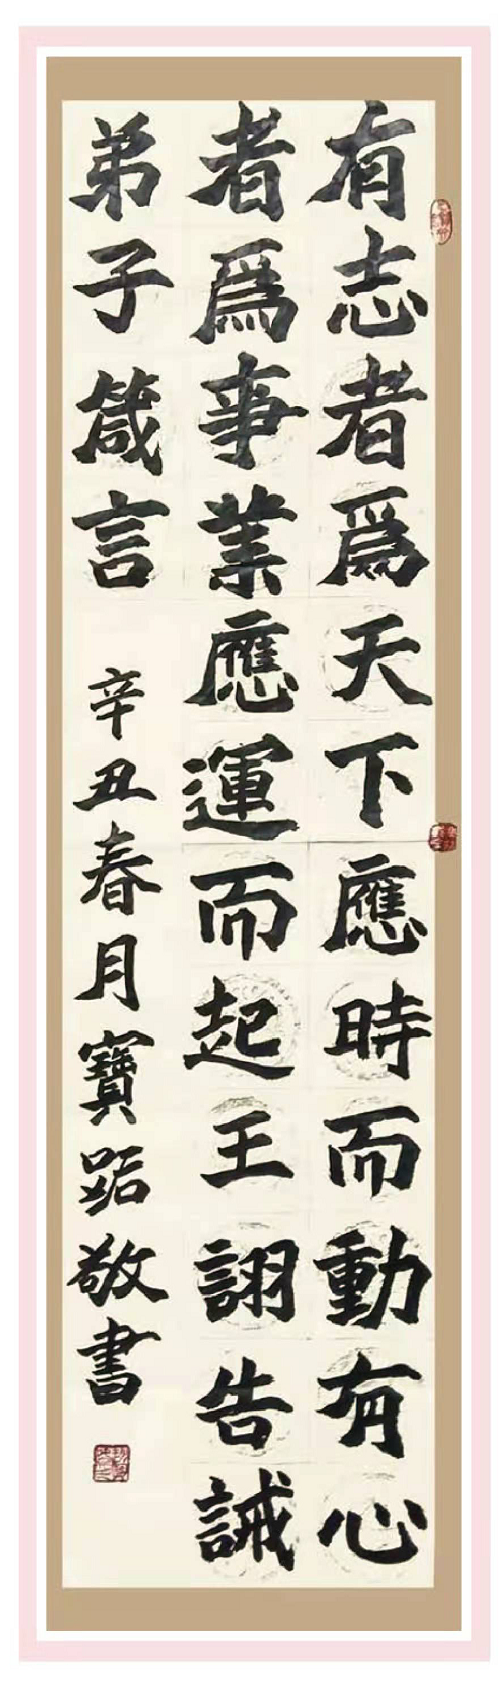 有志者爲天下應時而動有心
者爲事業應運而起王詡告誡
弟子箴言 辛丑春月寶敬書